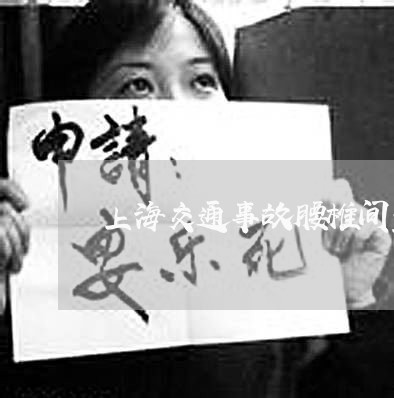 申請：
上海交通事故腰椎间
安乐死